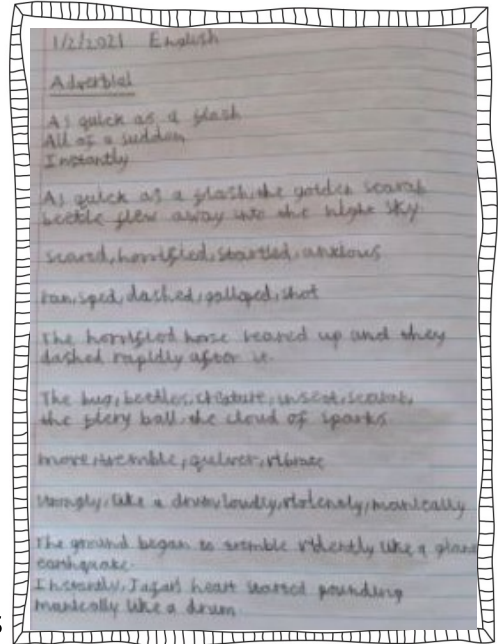 1/2/2021 English
Adverbial
As quick as a flash
All of a sudden
Instantly
As quick as a flash, the golden scarab
beetle flew away into the night sky
scared, horrified, startled, anxious
ran, sped, dashed, galloped, shot
The horrified horse reared up and they
dashed rapidly after it.
The bug, beetles, creature, insect, scarab,
the fiery ball, the cloud of sparks
move, tremble, quiver, vibrate
strongly, like a drum, loudly, violently, manically
The ground began to tremble violently like a giant
earthquake.
Instantly, Jafar's heart started pounding
manically like a drum